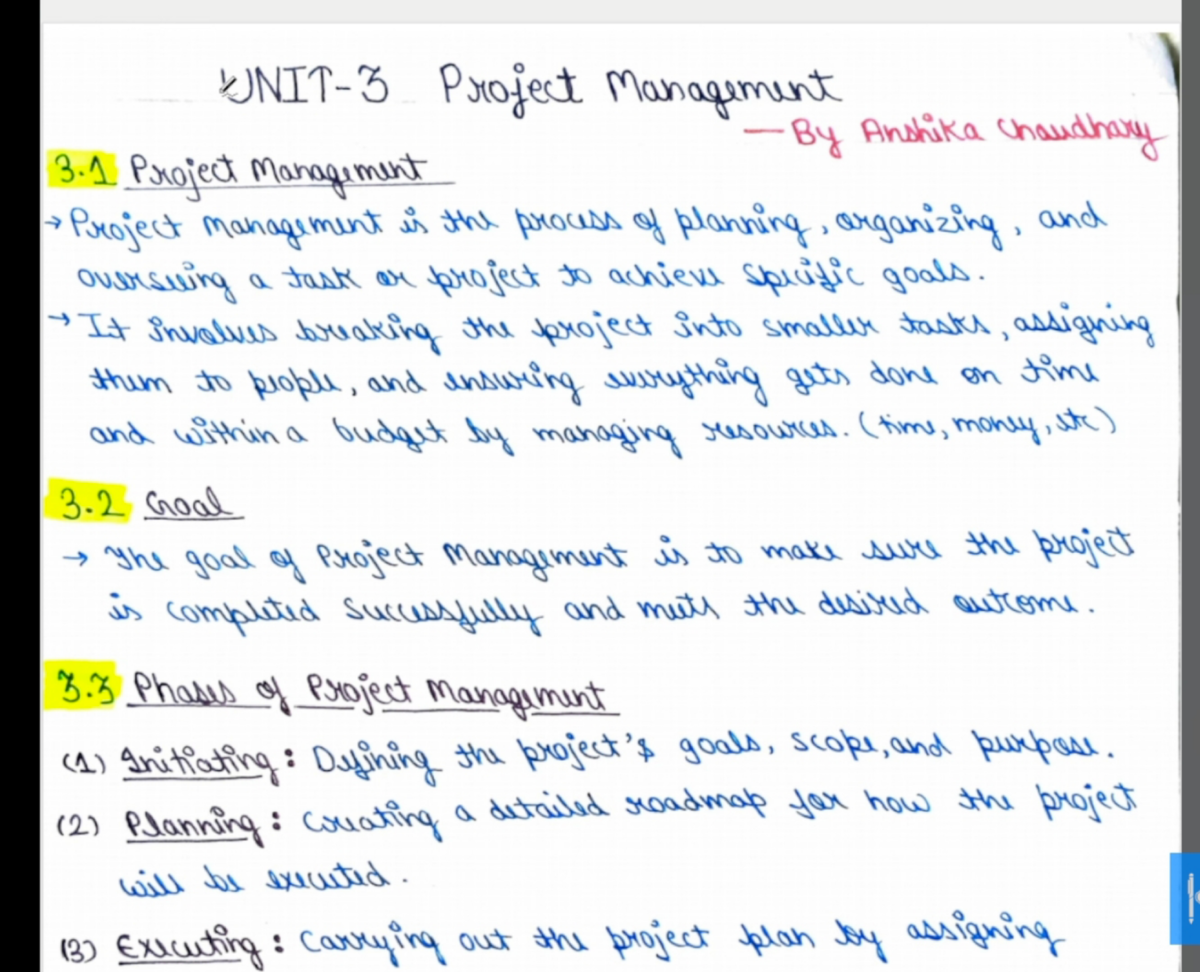 UNIT-3 Project Management
— By Anshika Chaudhary
3.1 Project Management
→ Project management is the process of planning, organizing, and
overseeing a task or project to achieve specific goals.
→ It involves breaking the project into smaller tasks, assigning
them to people, and ensuring everything gets done on time
and within a budget by managing resources. (time, money, etc)
3.2 Goal
→ The goal of Project Management is to make sure the project
is completed successfully and meets the desired outcome.
3.3 Phases of Project Management
(1) Initiating : Defining the project's goals, scope, and purpose.
(2) Planning : Creating a detailed roadmap for how the project
will be executed.
(3) Executing : Carrying out the project plan by assigning